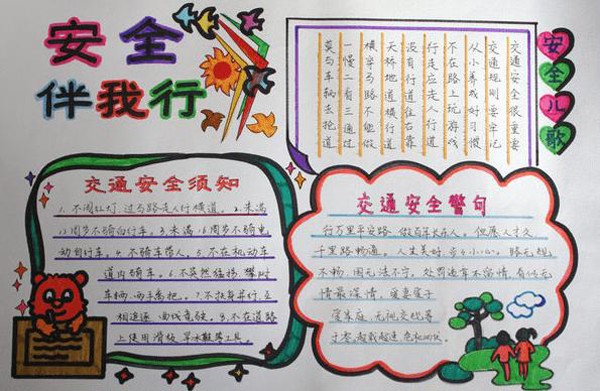 安全
伴我行
安全儿歌
交通安全很重要
交通规则要牢记
从小养成好习惯
不在路上玩游戏
行走应走人行道
没有行道往右靠
天桥地道横行道
横穿马路不能做
一慢二看三通过
莫与车辆去抢道
交通安全须知
1.不闯红灯,过马路走人行横道。2.未满
12周岁不骑自行车。3.未满16周岁不骑电
动自行车。4.不骑车带人。5.不在机动车
道内骑车。6.不突然猛拐、攀附
车辆、两手离把。7.不扶身并行、互
相追逐、曲线竞驶。8.不在道路
上使用滑板、旱冰鞋等工具。
交通安全警句
行万里平安路,做百年长在人。但愿人才久,
千里路畅通。人生美好,步步小心,路无规
不畅,国无法不宁。处罚违章不留情,看似无
情最深情。爱妻爱子
爱家庭,无视交规等